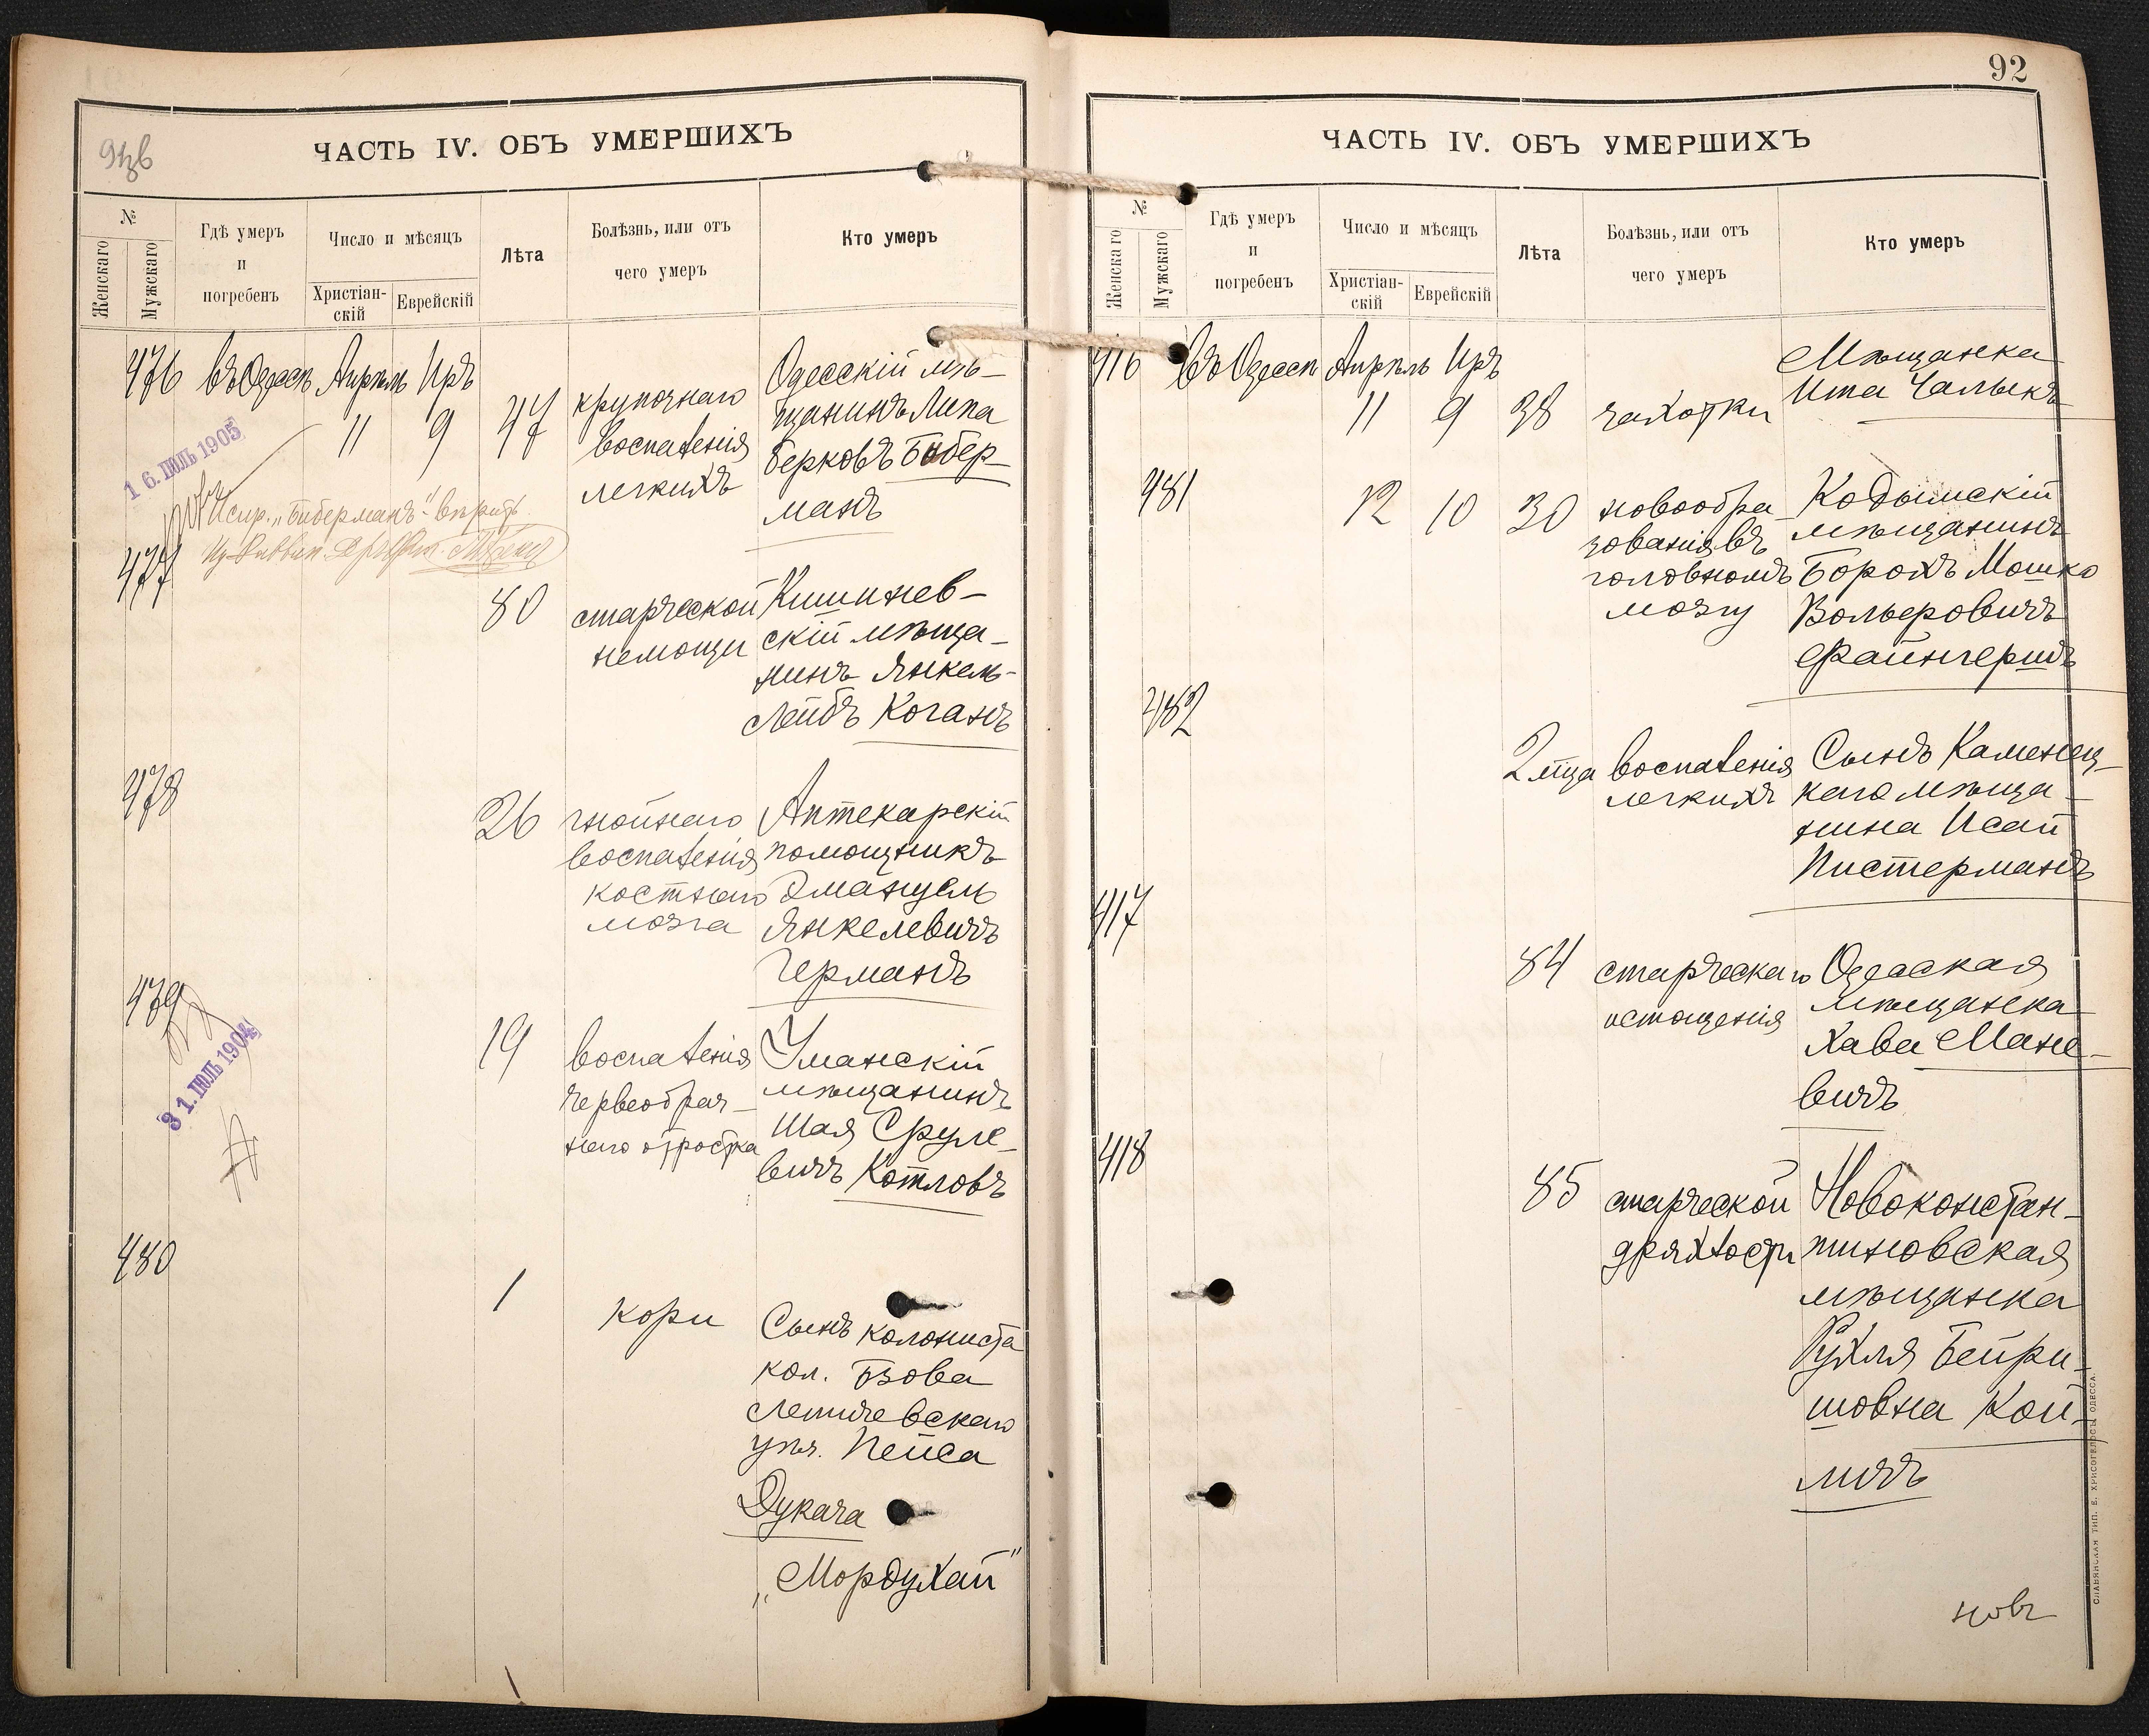 ЧАСТЬ IV. ОБЪ УМЕРШИХЪ
№
Женскаго
Мужскаго
Гдѣ умеръ
и
погребенъ
Число и мѣсяцъ
Христіан-
скій
Еврейскій
Лѣта
Болѣзнь, или отъ
чего умеръ
Кто умеръ
476 въ Одессѣ Апрѣль Иръ
11 9 47
крупознаго
воспаленія
легкихъ
Одесскій мѣ-
щанинъ Липа
Берковъ Бибер-
манъ
16. ІЮЛЬ 1905
Испр. „Биберманъ" вѣрить.
477
80
старческой
немощи
Кишинев-
скій мѣща-
нинъ Янкель-
Лейбъ Коганъ
478
26
гнойнаго
воспаленія
костнаго
мозга
Аптекарскій
помощникъ
Эмануель
Янкелевичъ
Германъ
479
31. ІЮЛЬ 1904
19
воспаленія
червеобраз-
наго отростка
Уманскій
мѣщанинъ
Шая Сруле-
вичъ Котловъ
480
1
кори
Сынъ колониста
кол. Бзова
Летичевскаго
уѣз. Пейса
Дукача
„Мордухай"
92
ЧАСТЬ IV. ОБЪ УМЕРШИХЪ
№
Женскаго
Мужскаго
Гдѣ умеръ
и
погребенъ
Число и мѣсяцъ
Христіан-
скій
Еврейскій
Лѣта
Болѣзнь, или отъ
чего умеръ
Кто умеръ
416 Въ Одессѣ Апрѣль Иръ
11 9 38 чахотки
Мѣщанка
Ита Чалыкъ
481
12 10 30
новообра-
зованія въ
головномъ
мозгу
Кодымскій
мѣщанинъ
Борохъ Мошко
Вольфовичъ
Файнгершъ
482
2 м-ца
воспаленія
легкихъ
Сынъ Каменец-
каго мѣща-
нина Исай
Пистерманъ
417
84
старческаго
истощенія
Одесская
мѣщанка
Хава Мане-
вичъ
418
85
старческой
дряхлости
Новоконстан-
тиновская
мѣщанка
Рухля Бейри-
шовна Кой-
личъ
СЛАВЯНСКАЯ ТИП. Е. ХРИСОГЕЛОСЪ, ОДЕССА.